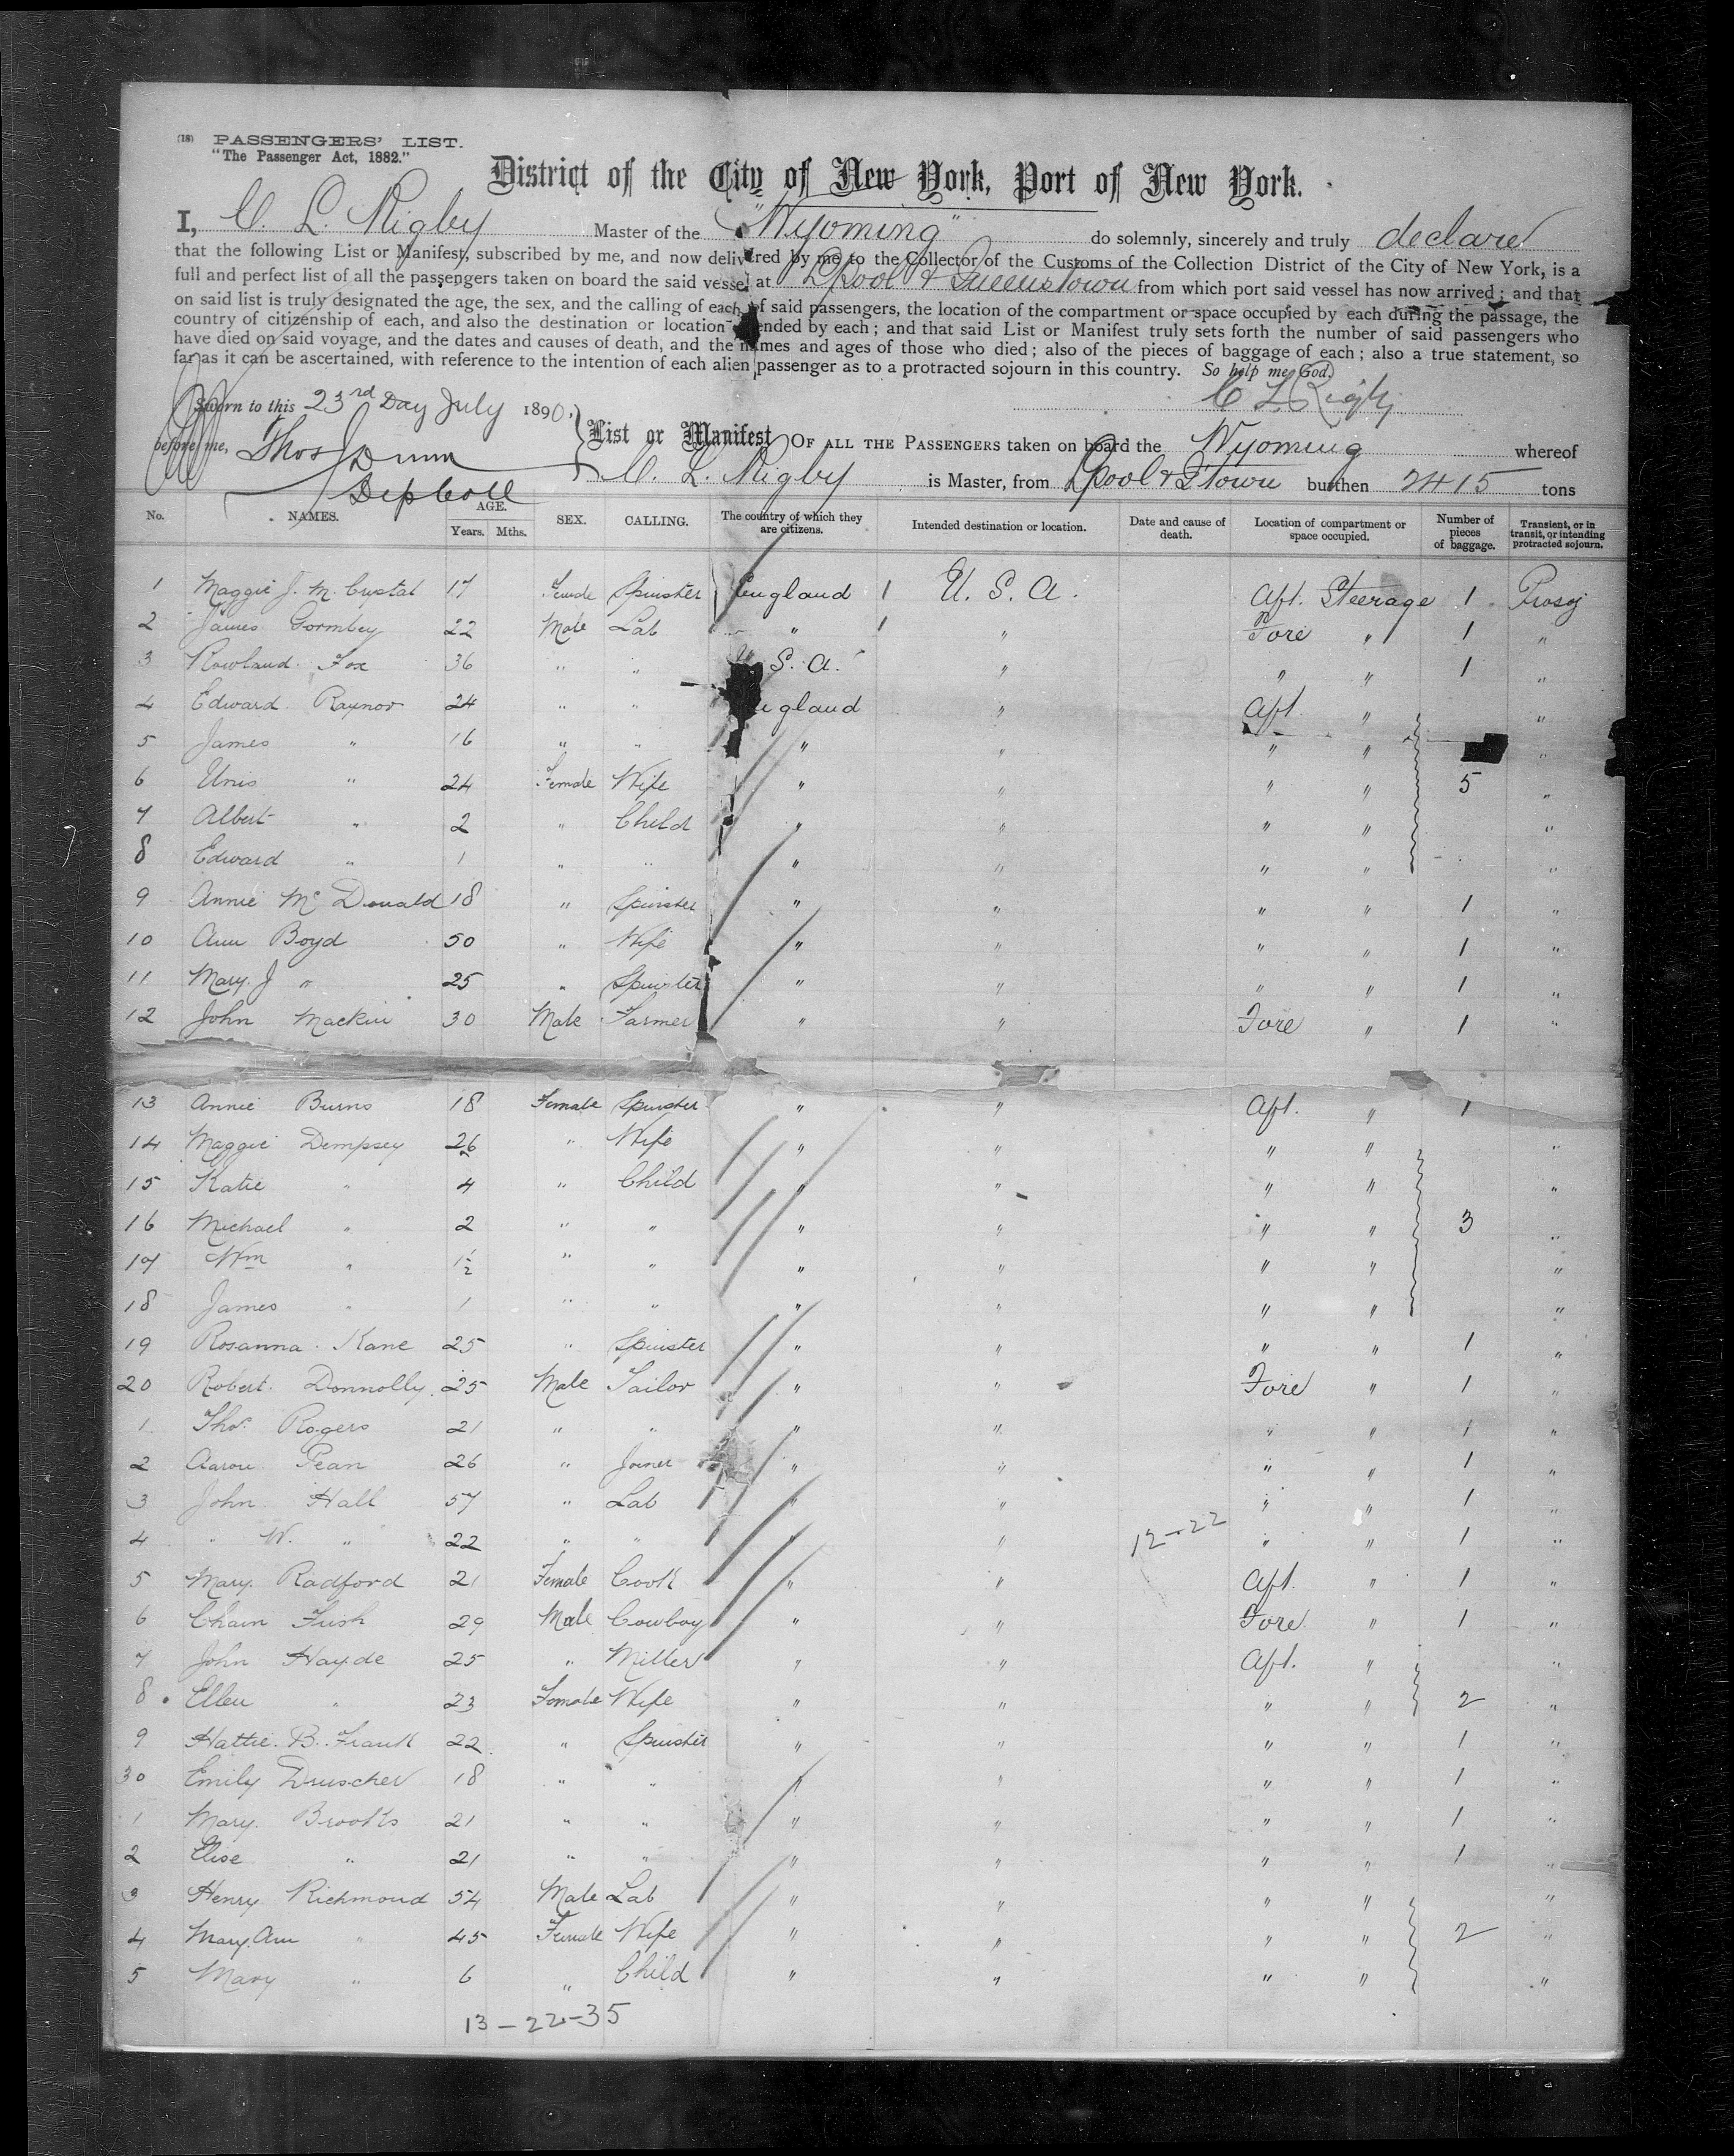 (18) PASSENGERS' LIST.
"The Passenger Act, 1882."
District of the City of New York, Port of New York.
I, C. L. Rigby Master of the "Wyoming" do solemnly, sincerely and truly declare
that the following List or Manifest, subscribed by me, and now delivered by me to the Collector of the Customs of the Collection District of the City of New York, is a
full and perfect list of all the passengers taken on board the said vessel at L'pool & Queenstown from which port said vessel has now arrived; and that
on said list is truly designated the age, the sex, and the calling of each of said passengers, the location of the compartment or space occupied by each during the passage, the
country of citizenship of each, and also the destination or location ended by each; and that said List or Manifest truly sets forth the number of said passengers who
have died on said voyage, and the dates and causes of death, and the names and ages of those who died; also of the pieces of baggage of each; also a true statement, so
far as it can be ascertained, with reference to the intention of each alien passenger as to a protracted sojourn in this country. So help me God.
C L Rigby
Sworn to this 23rd Day July 1890.
before me, Thos J Dunn
Dep Coll
List or Manifest OF ALL THE PASSENGERS taken on board the Wyoming whereof
C. L. Rigby is Master, from L'pool & Q'town burthen 2415 tons
No. NAMES. AGE. Years. Mths. SEX. CALLING. The country of which they are citizens. Intended destination or location. Date and cause of death. Location of compartment or space occupied. Number of pieces of baggage. Transient, or in transit, or intending protracted sojourn.
1 Maggie J. Mc Crystal 17 Female Spinster England U. S. A. Aft. Steerage 1
2 James Gormley 22 Male Lab " " Fore " 1 "
3 Rowland Fox 36 " " U.S.A. " " " 1 "
4 Edward Raynor 24 " " England " Aft " "
5 James " 16 " " " " " " "
6 Unis " 24 Female Wife " " " " 5 "
7 Albert " 2 " Child " " " " "
8 Edward " 1 " " " " " " "
9 Annie Mc Donald 18 " Spinster " " " " 1 "
10 Ann Boyd 50 " Wife " " " " 1 "
11 Mary J " 25 " Spinster " " " " 1 "
12 John Mackin 30 Male Farmer " " Fore " 1 "
13 Annie Burns 18 Female Spinster " " Aft. " 1
14 Maggie Dempsey 26 " Wife " " " " "
15 Katie " 4 " Child " " " " "
16 Michael " 2 " " " " " " 3 "
17 Wm " 1½ " " " " " " "
18 James " 1 " " " " " " "
19 Rosanna Kane 25 " Spinster " " " " 1 "
20 Robert Donnolly 25 Male Tailor " " Fore " 1 "
1 Thos Rogers 21 " " " " " " 1 "
2 Aaron Pean 26 " Joiner " " " " 1 "
3 John Hall 57 " Lab " " " " 1 "
4 " W. " 22 " " " " 12-22 " " 1 "
5 Mary Radford 21 Female Cook " " Aft. " 1 "
6 Chain Fush 29 Male Cowboy " " Fore " 1 "
7 John Hayde 25 " Miller " " Aft. " "
8 Ellen " 23 Female Wife " " " " 2 "
9 Hattie B. Frank 22 " Spinster " " " " 1 "
30 Emily Druscher 18 " " " " " " 1 "
1 Mary Brooks 21 " " " " " " 1 "
2 Elise " 21 " " " " " " 1 "
3 Henry Richmond 54 Male Lab " " " " "
4 Mary Ann " 45 Female Wife " " " " 2 "
5 Mary " 6 " Child " " " " "
13-22-35